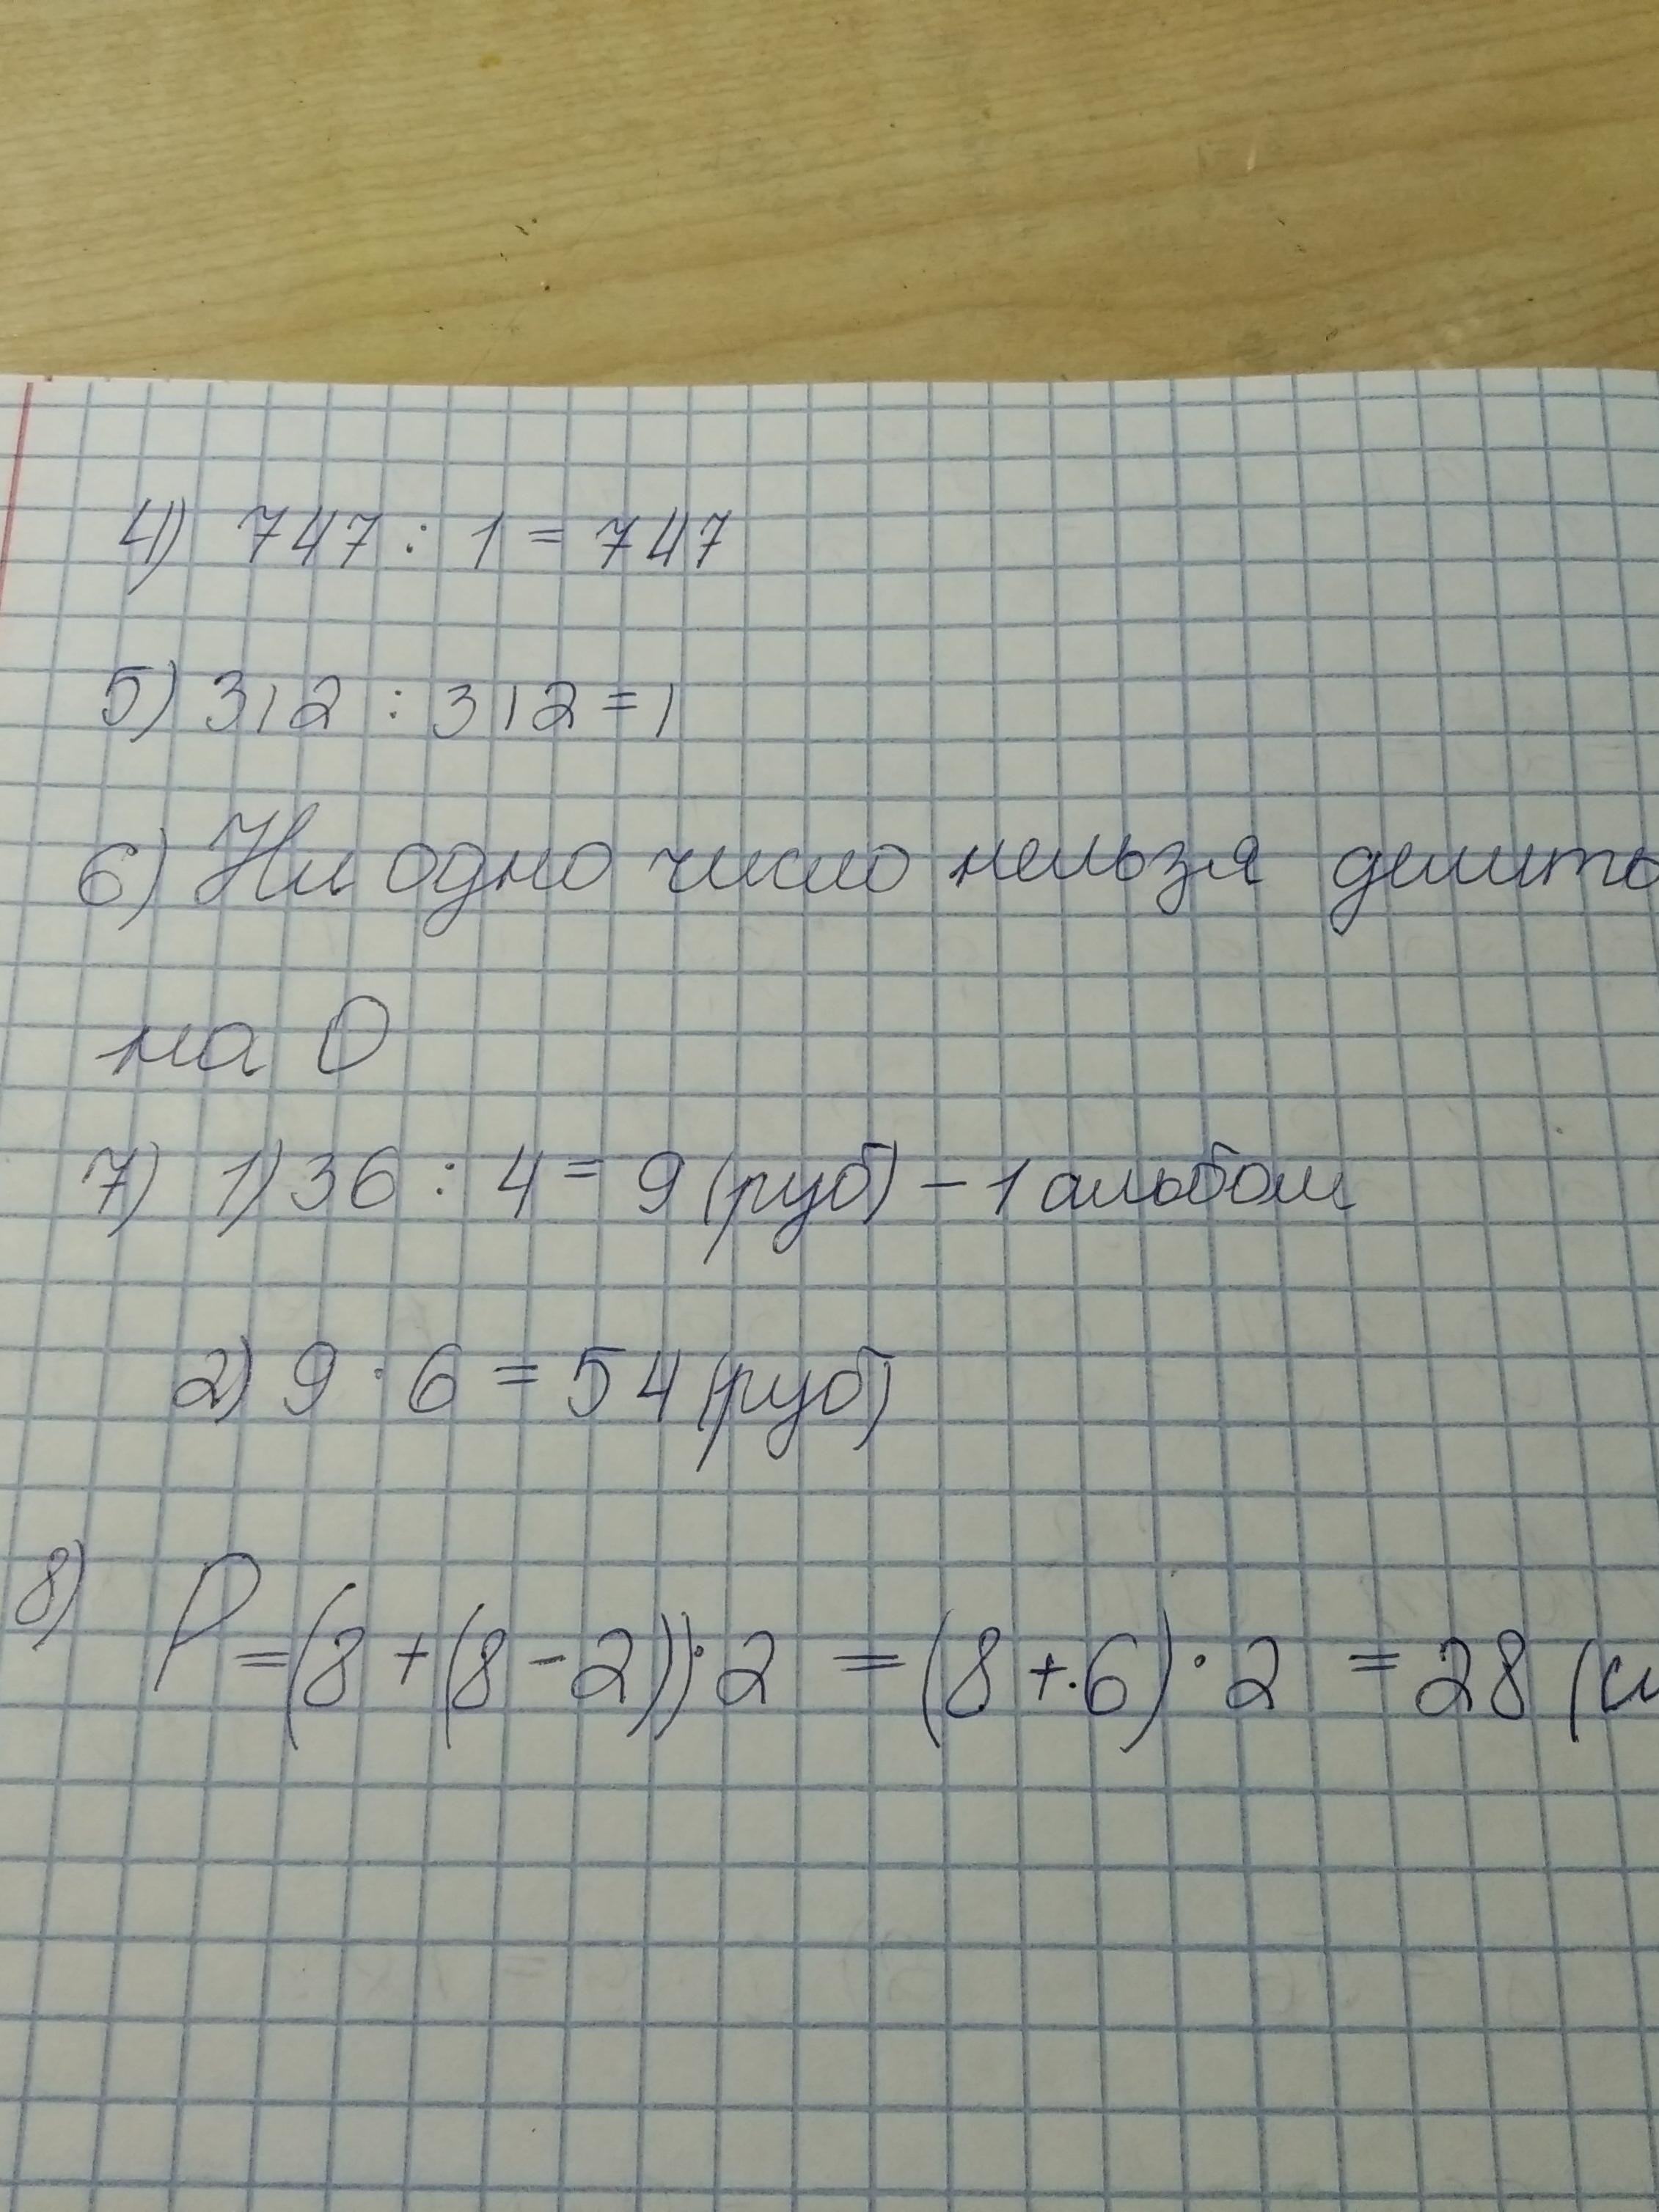 4) 747 : 1 = 747
5) 312 : 312 = 1
6) Ни одно число нельзя делить
на 0
7) 1) 36 : 4 = 9 (руб) - 1 альбом
2) 9 · 6 = 54 (руб)
8) P = (8 + (8 - 2)) · 2 = (8 + 6) · 2 = 28 (см